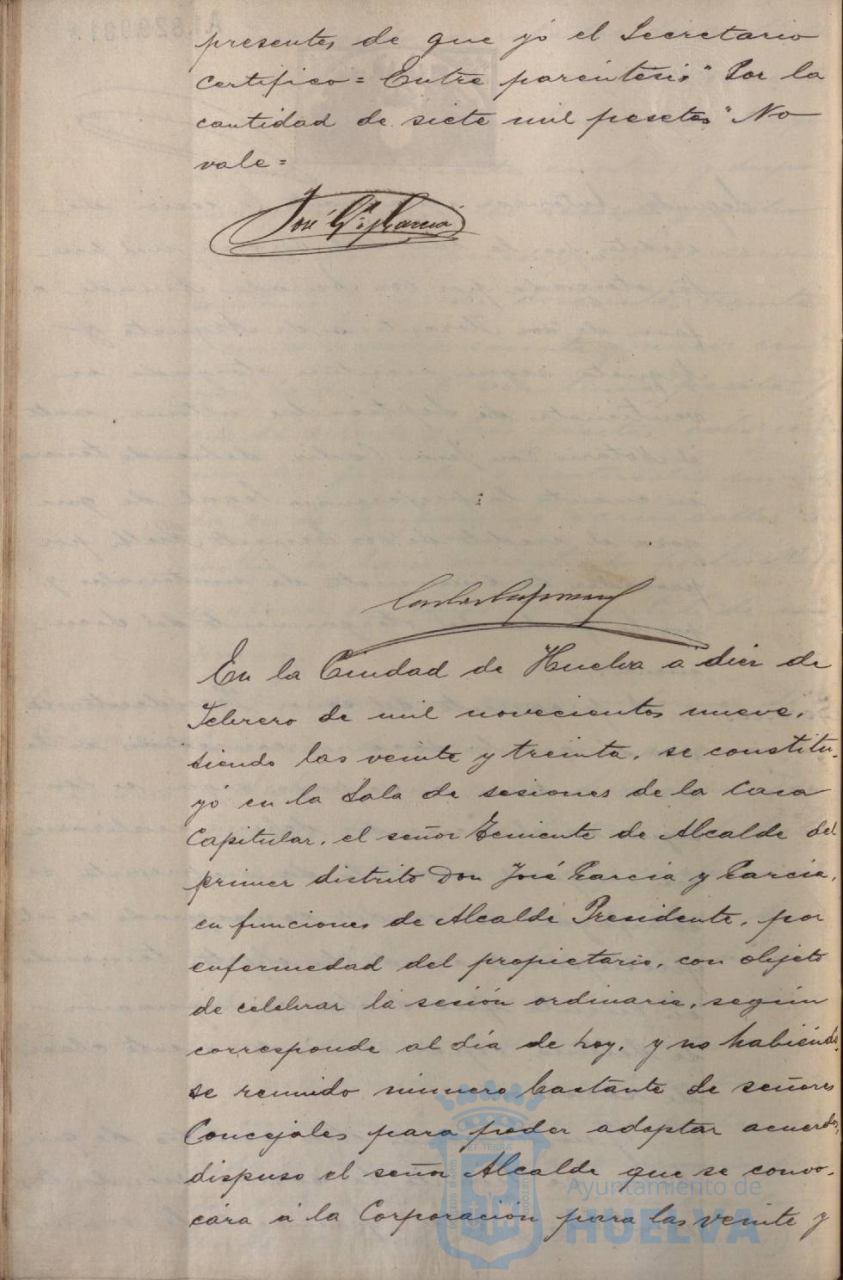 presentes de que yó el Secretario
certifico = Entre paréntesis "Por la
cantidad de siete mil pesetas" No
vale =
José Ga y García
En la Ciudad de Huelva a diez de
Febrero de mil novecientos nueve,
siendo las veinte y treinta, se constitu-
yó en la Sala de sesiones de la Casa
Capitular, el señor Teniente de Alcalde del
primer distrito Don José García y García,
en funciones de Alcalde Presidente, por
enfermedad del propietario, con objeto
de celebrar la sesión ordinaria, según
corresponde al día de hoy, y no habiendo-
se reunido número bastante de señores
Concejales para poder adoptar acuerdos,
dispuso el señor Alcalde que se convo-
cára á la Corporación para las veinte y
Ayuntamiento de
HUELVA